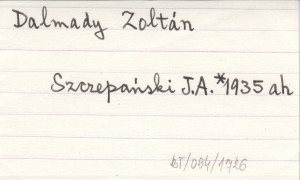 Dalmady Zoltán
Szczepański J.A.*1935 ah
BT/094/1726